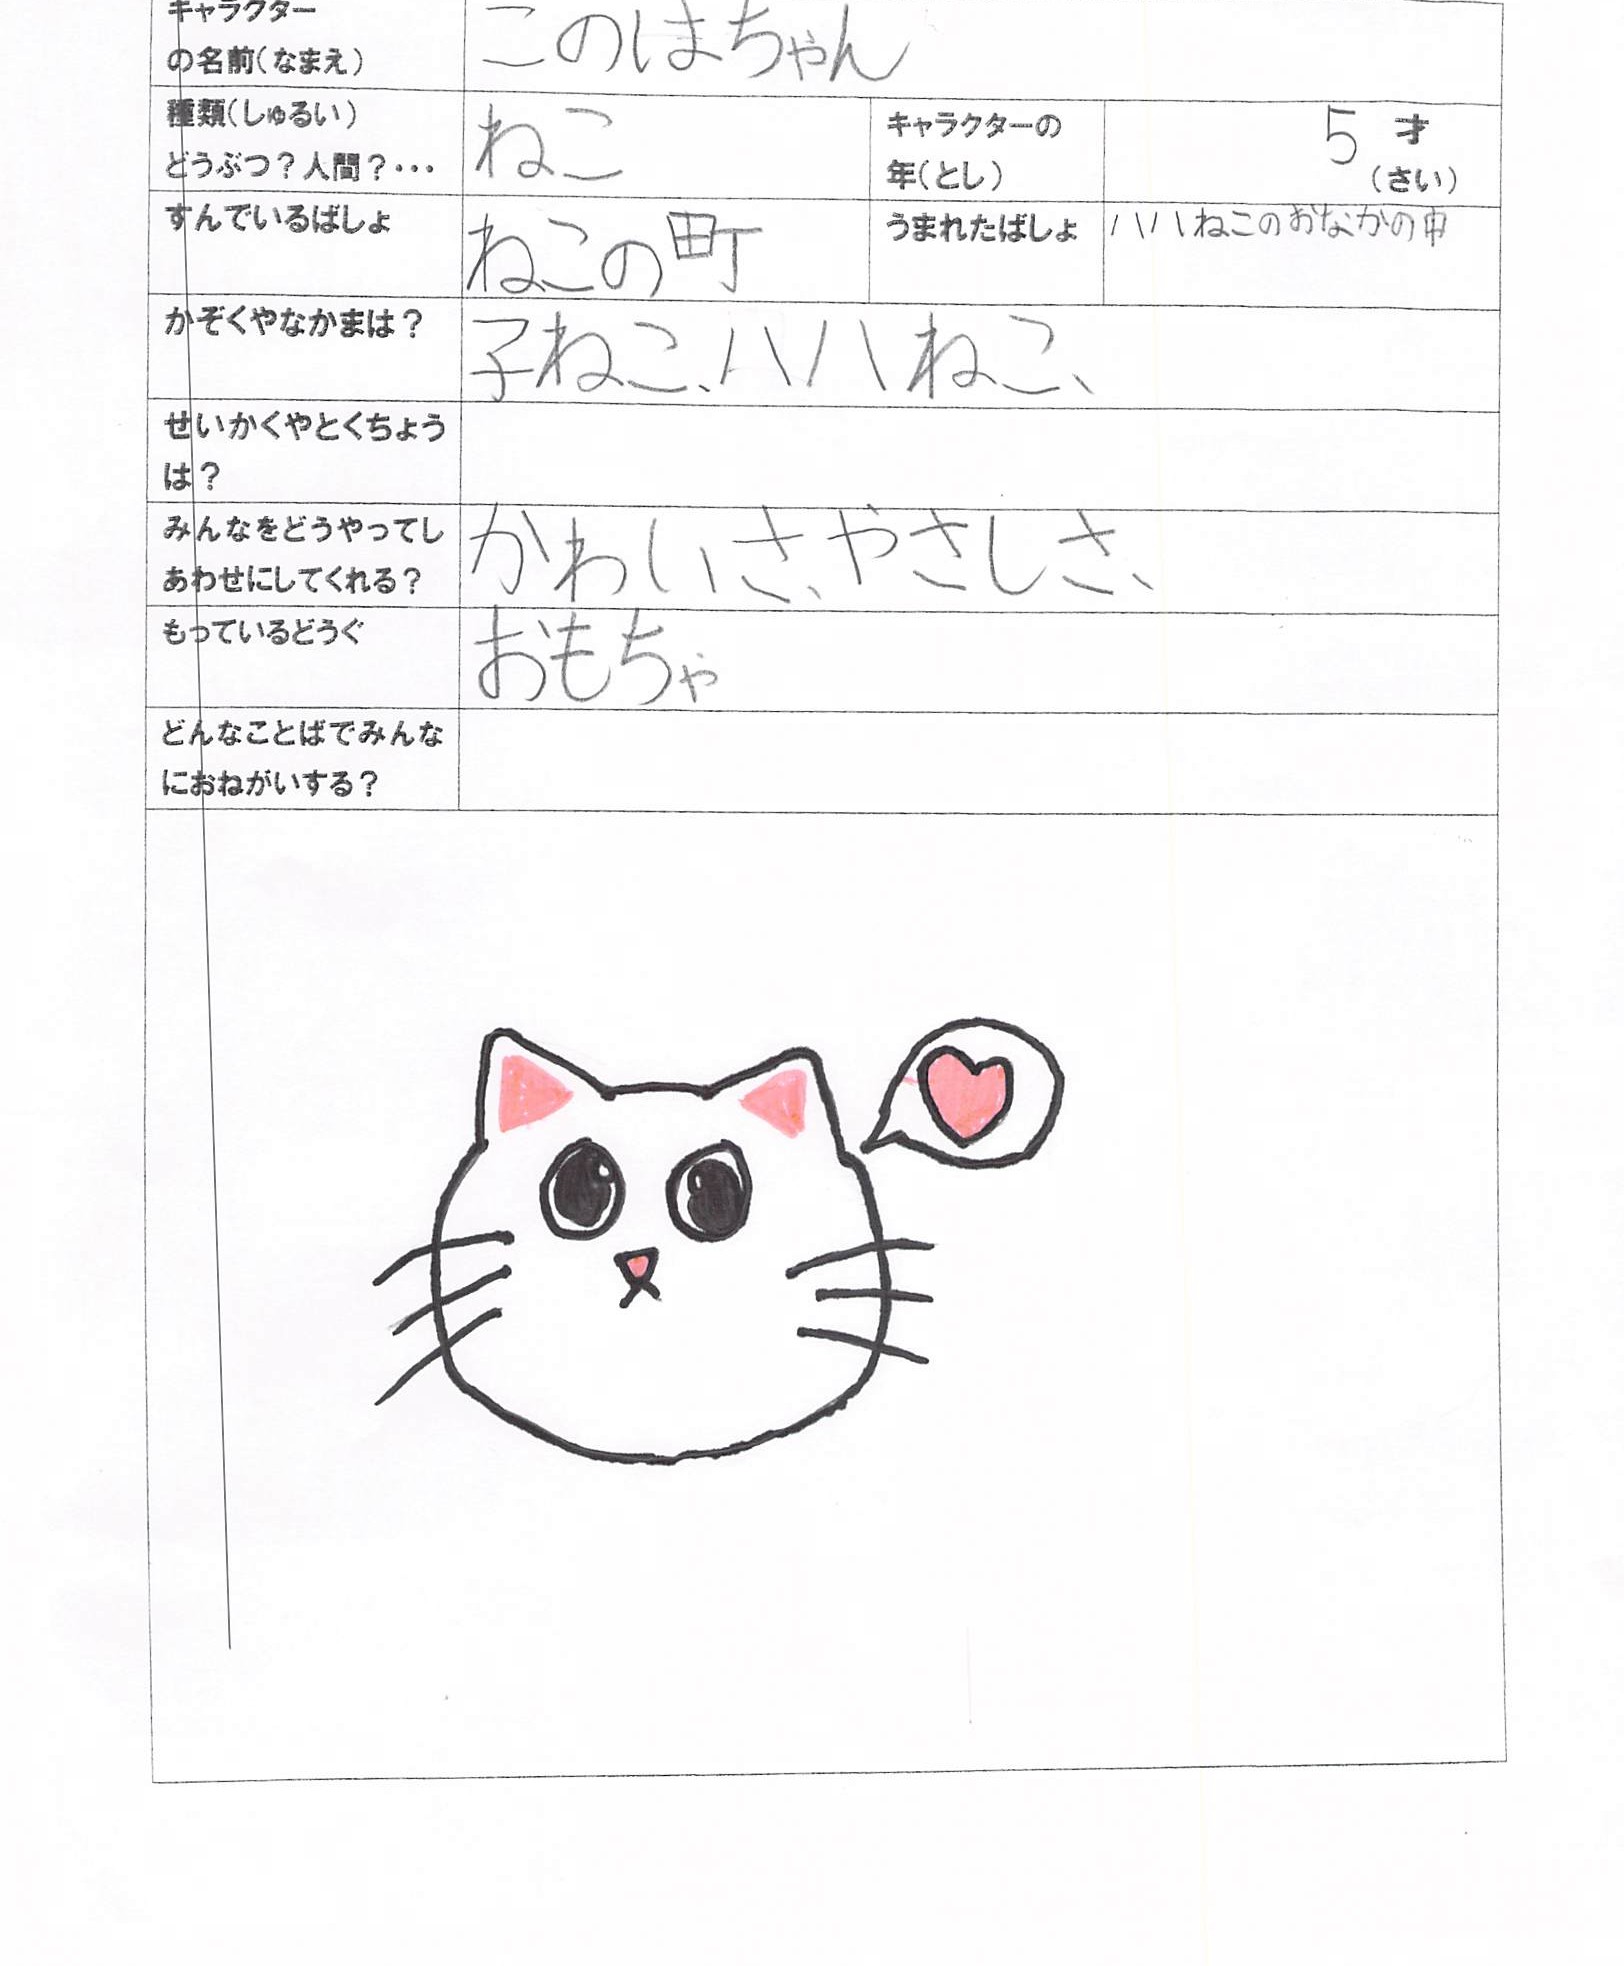 キャラクター
の名前(なまえ)
このはちゃん
種類(しゅるい)
どうぶつ?人間?・・・
ねこ
キャラクターの
年(とし)
5 才
(さい)
すんでいるばしょ
ねこの町
うまれたばしょ
ハハねこのおなかの中
かぞくやなかまは?
子ねこ、ハハねこ、
せいかくやとくちょう
は?
みんなをどうやってし
あわせにしてくれる?
かわいさ、やさしさ、
もっているどうぐ
おもちゃ
どんなことばでみんな
におねがいする?